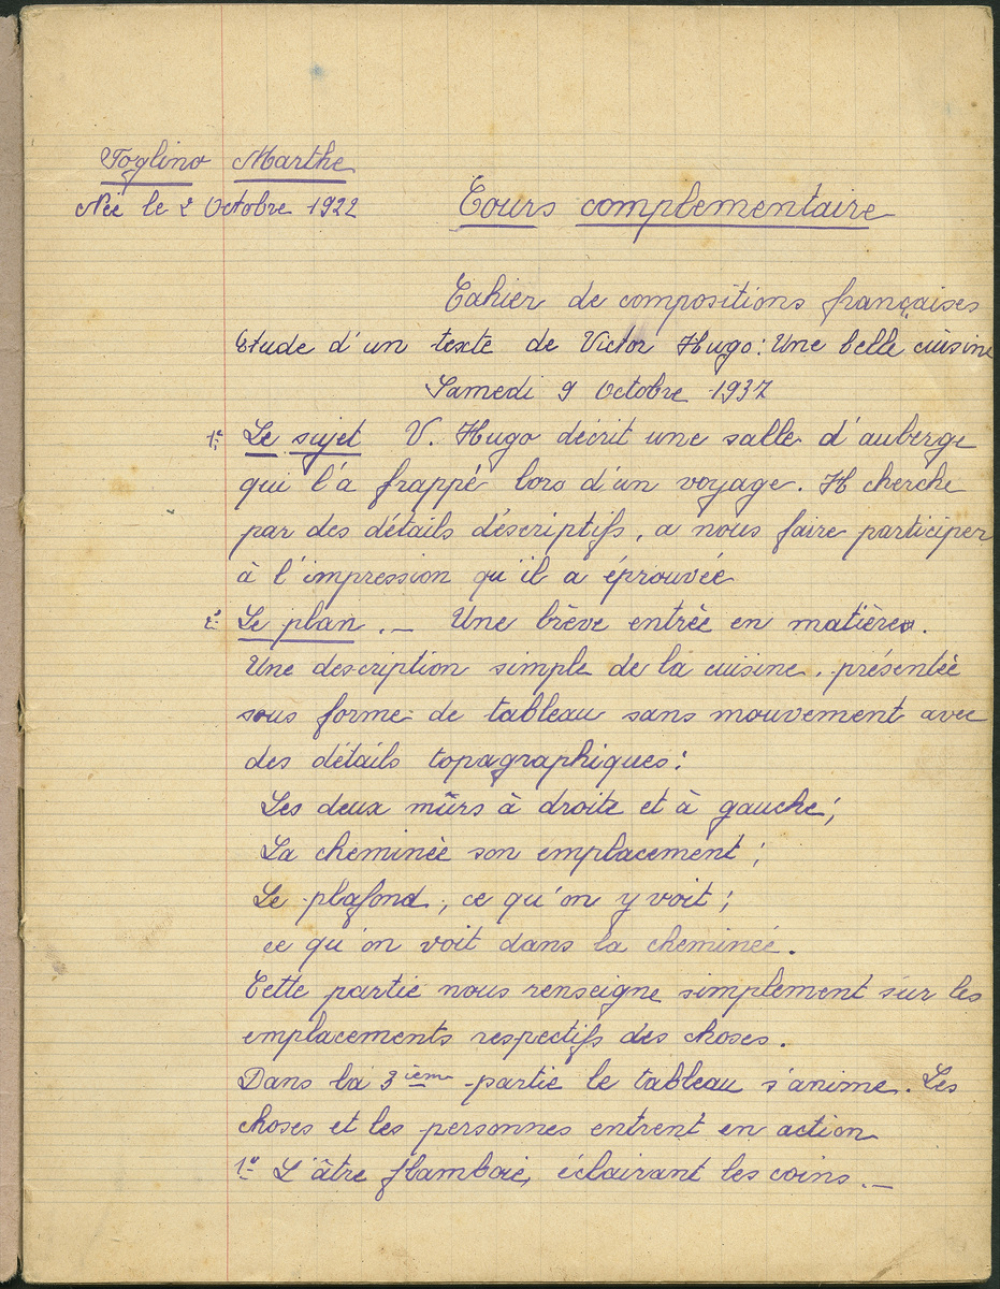 Toglino Marthe
Née le 2 Octobre 1922
Cours complementaire
Cahier de compositions françaises
Etude d'un texte de Victor Hugo : Une belle cuisine
Samedi 9 Octobre 1937
1e Le sujet V. Hugo décrit une salle d'auberge
qui l'a frappé lors d'un voyage. Il cherche
par des détails déscriptifs, a nous faire participer
à l'impression qu'il a éprouvée
2e Le plan . _ Une brève entrée en matière.
Une description simple de la cuisine. présentée
sous forme de tableau sans mouvement avec
des détails topagraphiques :
Les deux mûrs à droite et à gauche ;
La cheminée son emplacement ;
Le plafond, ce qu'on y voit ;
ce qu'on voit dans la cheminée.
Cette partie nous renseigne simplement sur les
emplacements respectifs des choses.
Dans la 3ièm partie le tableau s'anime. Les
choses et les personnes entrent en action
1e L'âtre flamboie, éclairant les coins . _